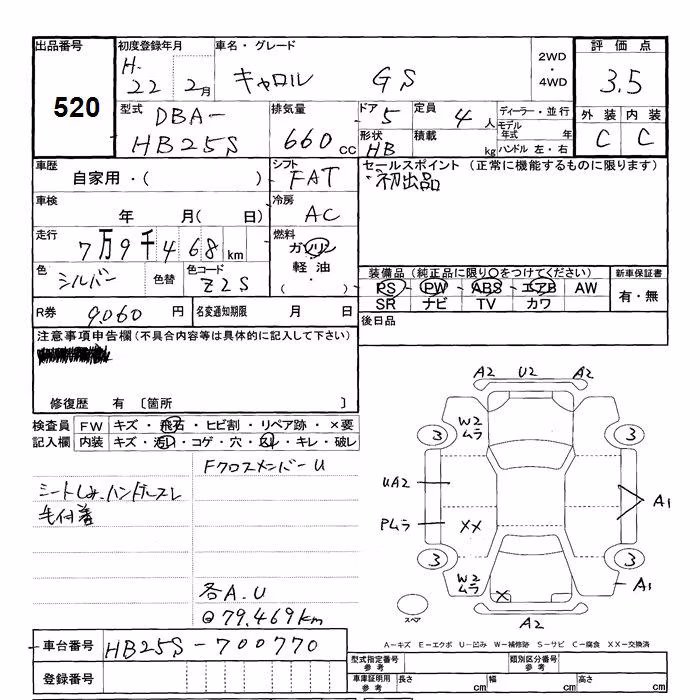 出品番号
520
初度登録年月
H.
22 2月
車名・グレード
キャロル GS
2WD
・
4WD
評価点
3.5
型式
DBA-
HB25S
排気量
660cc
ドア 5
形状 HB
定員 4人
積載 kg
ディーラー・並行
モデル年式 年
ハンドル 左・右
外装 内装
C C
車歴
自家用・( )
シフト
FAT
セールスポイント (正常に機能するものに限ります)
初出品
車検
年 月( 日)
冷房
AC
走行
7万9千468km
燃料
ガソリン
・
軽油
( )
色
シルバー
色替
色コード
Z2S
装備品(純正品に限り○をつけてください)
新車保証書
PS PW ABS エアB AW
SR ナビ TV カワ
有・無
R券 9,060円
名変通知期限 月 日
後日品
注意事項申告欄(不具合内容等は具体的に記入して下さい)
修復歴 有 〔箇所 〕
検査員
記入欄
FW キズ・飛石・ヒビ割・リペア跡・×要
内装 キズ・汚レ・コゲ・穴・スレ・キレ・破レ
FクロスメンバーU
シートしみ.ハンドルスレ
毛付着
各A.U
79.469km
A2 U2 A2
W2
ムラ
3 3
UA2
A1
Pムラ
XX
3 3
W2
ムラ
X
A1
スペア
A2
A-キズ E-エクボ U-凹み W-補修跡 S-サビ C-腐食 XX-交換済
車台番号 HB25S-700770
登録番号
型式指定番号
参考
類別区分番号
参考
車庫証明用
参考
長さ cm
幅 cm
高さ cm